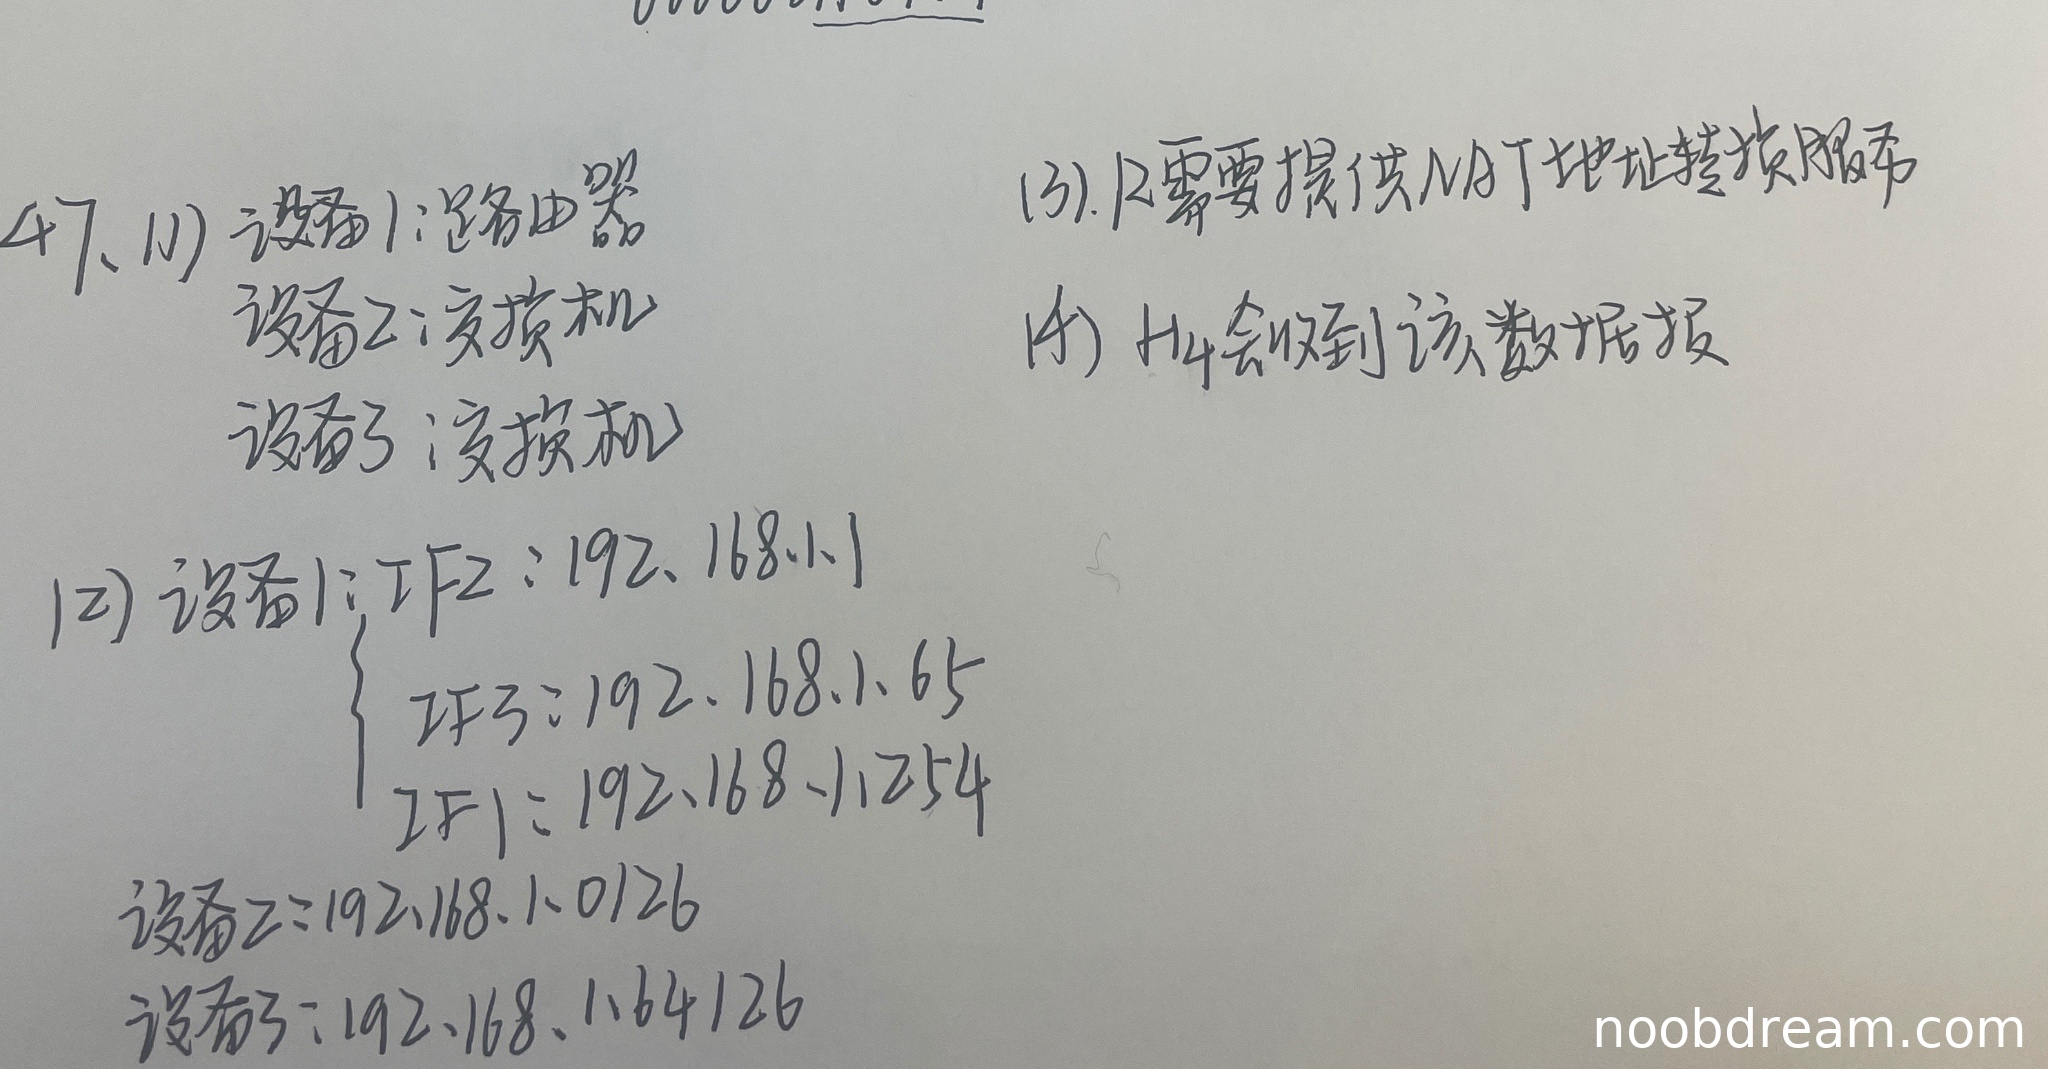 47、(1) 设备1:路由器
设备2:交换机
设备3:交换机
(2) 设备1:IF2:192.168.1.1
IF3:192.168.1.65
IF1:192.168.1.254
设备2:192.168.1.0/26
设备3:192.168.1.64/26
(3). R需要提供NAT地址转换服务
(4) H4会收到该数据报
noobdream.com